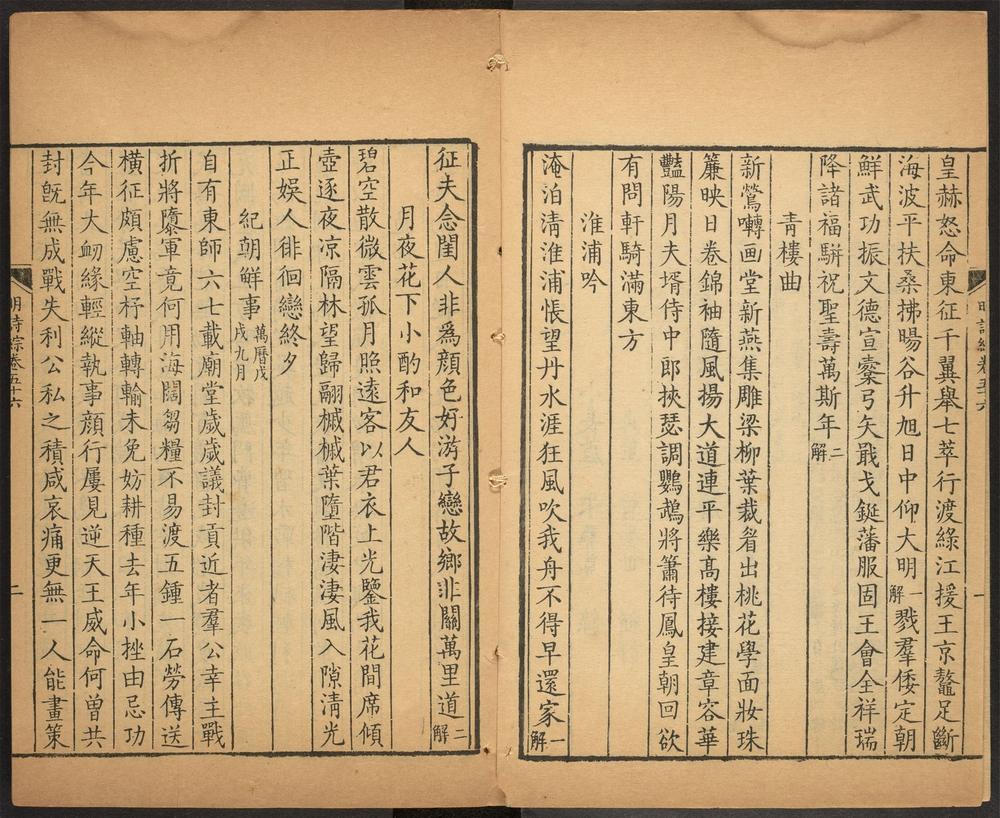 皇赫怒命東征千翼舉七萃行渡綠江援王京鼇足斷
海波平扶桑拂暘谷升旭日中仰大明一解戮羣倭定朝
鮮武功振文德宣櫜弓矢戢戈鋋藩服固王會全祥瑞
降諸福駢祝聖壽萬斯年二解
青樓曲
新鶯囀画堂新燕集雕梁柳葉裁眉出桃花學面妝珠
簾映日卷錦袖隨風揚大道連平樂高樓接建章容華
豔陽月夫壻侍中郎挾瑟調鸚鵡將簫待鳳皇朝回欲
有問軒騎滿東方
淮浦吟
淹泊淸淮浦悵望丹水涯狂風吹我舟不得早還家一解
征夫念閨人非爲顔色好游子戀故鄉非關萬里道二解
月夜花下小酌和友人
碧空散微雲孤月照遠客以君衣上光鑒我花間席傾
壺逐夜凉隔林望歸翮槭槭葉墮階淒淒風入隙淸光
正娛人徘徊戀終夕
紀朝鮮事萬曆戊戌九月
自有東師六七載廟堂歲歲議封貢近者羣公幸主戰
折將隳軍竟何用海闊芻糧不易渡五鍾一石勞傳送
橫征頗慮空杼軸轉輸未免妨耕種去年小挫由忌功
今年大衂緣輕縱執事顔行屢見逆天王威命何曾共
封旣無成戰失利公私之積咸哀痛更無一人能畫策
明詩綜卷五十六
一
明詩綜卷五十六
二